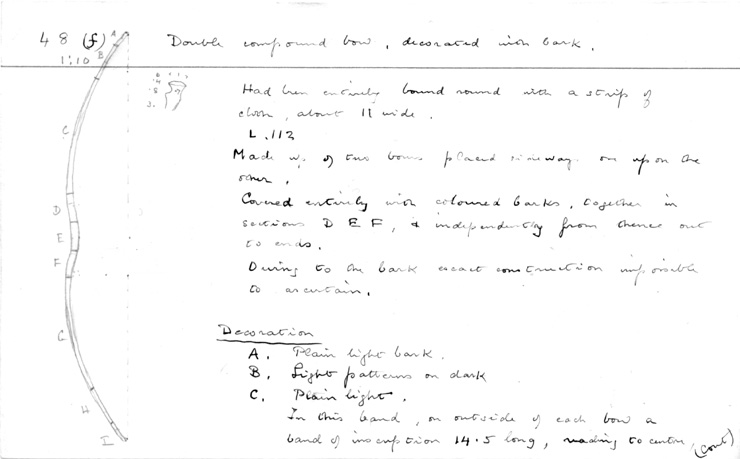 48 (f) Double compound bow, decorated with bark.
1:10
Had been entirely bound round with a strip of
cloth, about 11 wide.
L. 112
Made up of two bows placed sideways on upon the
other.
Covered entirely with coloured barks, together in
sections D E F, & independently from thence out
to ends.
Owing to the bark exact construction impossible
to ascertain.
Decoration
A. Plain light bark.
B. Light patterns on dark
C. Plain light.
In this band, on outside of each bow a
band of inscription 14.5 long, reading to centre, (cont)
A
B
C
D
E
F
G
H
I